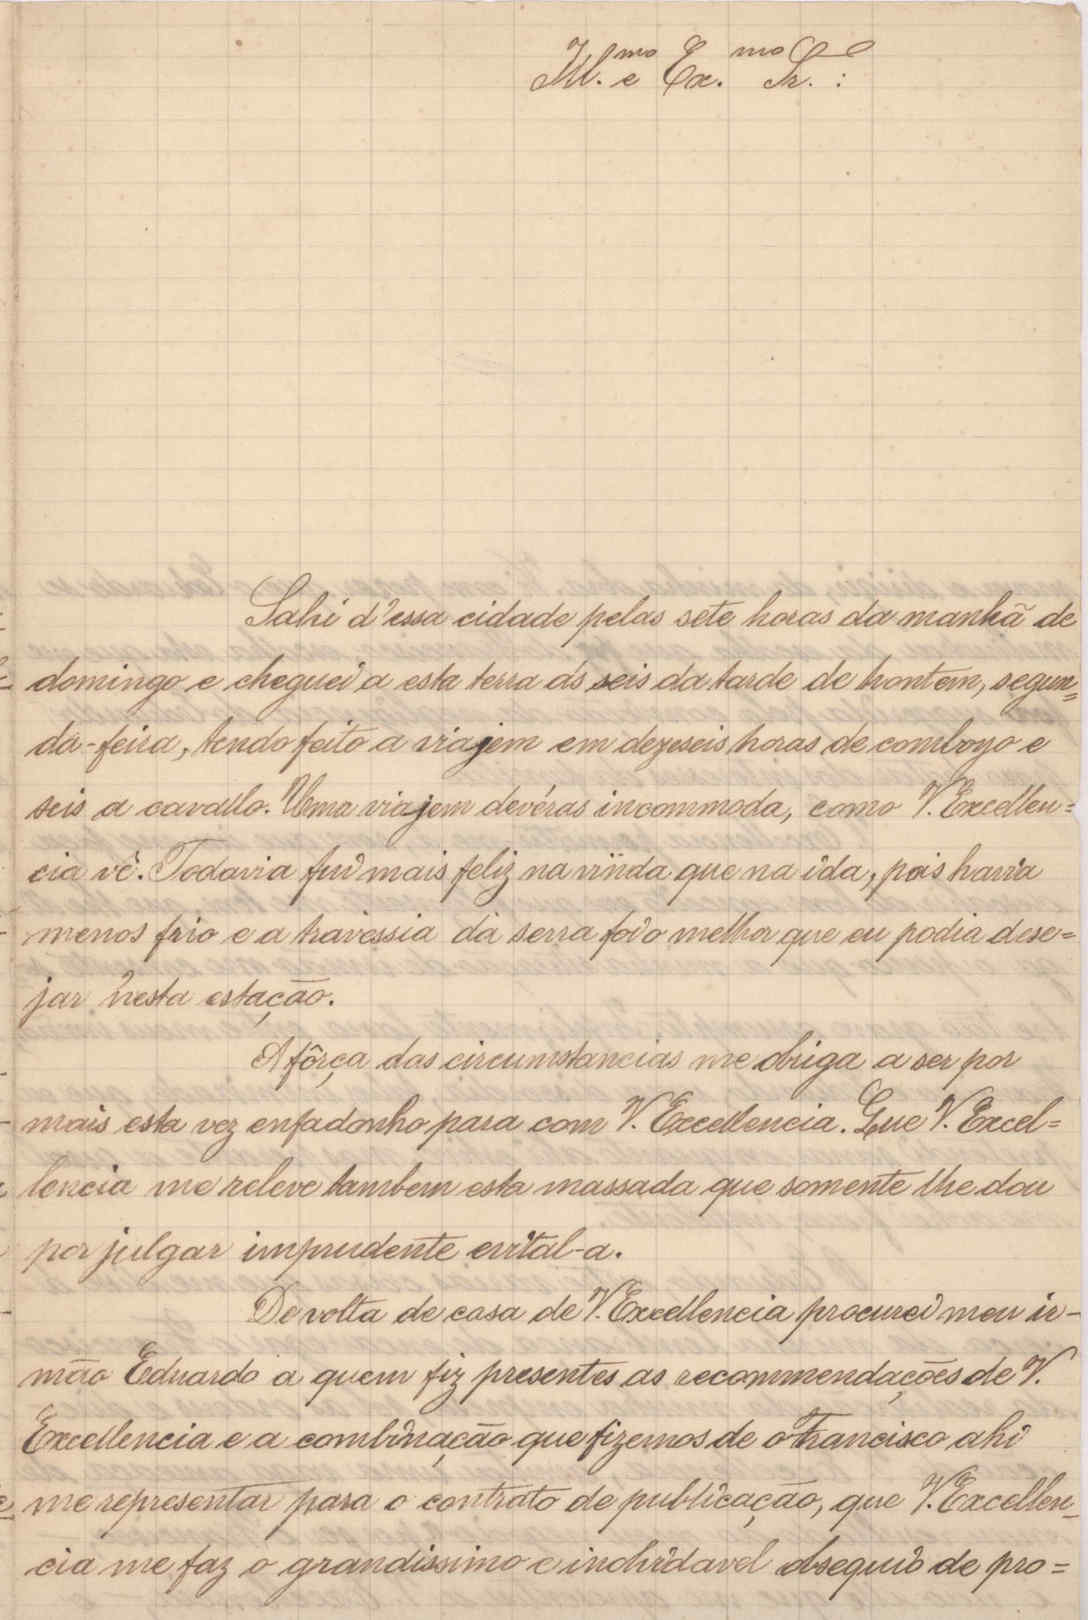 Ill.mo e Ex.mo Sr. :
Sahi d'essa cidade pelas sete horas da manhã de
domingo e cheguei a esta terra ás seis da tarde de hontem, segun=
da-feira, tendo feito a viajem em dezeseis horas de comboyo e
seis a cavallo. Uma viajem devéras incommoda, como V. Excellen=
cia vê. Todavia fui mais feliz na vinda que na ida, pois havia
menos frio e a travessia da serra foi o melhor que eu podia dese=
jar nesta estação.
A fôrça das circumstancias me obriga a ser por
mais esta vez enfadonho para com V. Excellencia. Que V. Excel=
lencia me releve tambem esta massada que somente lhe dou
por julgar imprudente evital-a.
De volta de casa de V. Excellencia procurei meu ir-
mão Eduardo a quem fiz presentes as recommendações de V.
Excellencia e a combinação que fizemos de o Francisco ahi
me representar para o contrato de publicação, que V. Excellen_
cia me faz o grandissimo e inolvidavel obsequio de pro=